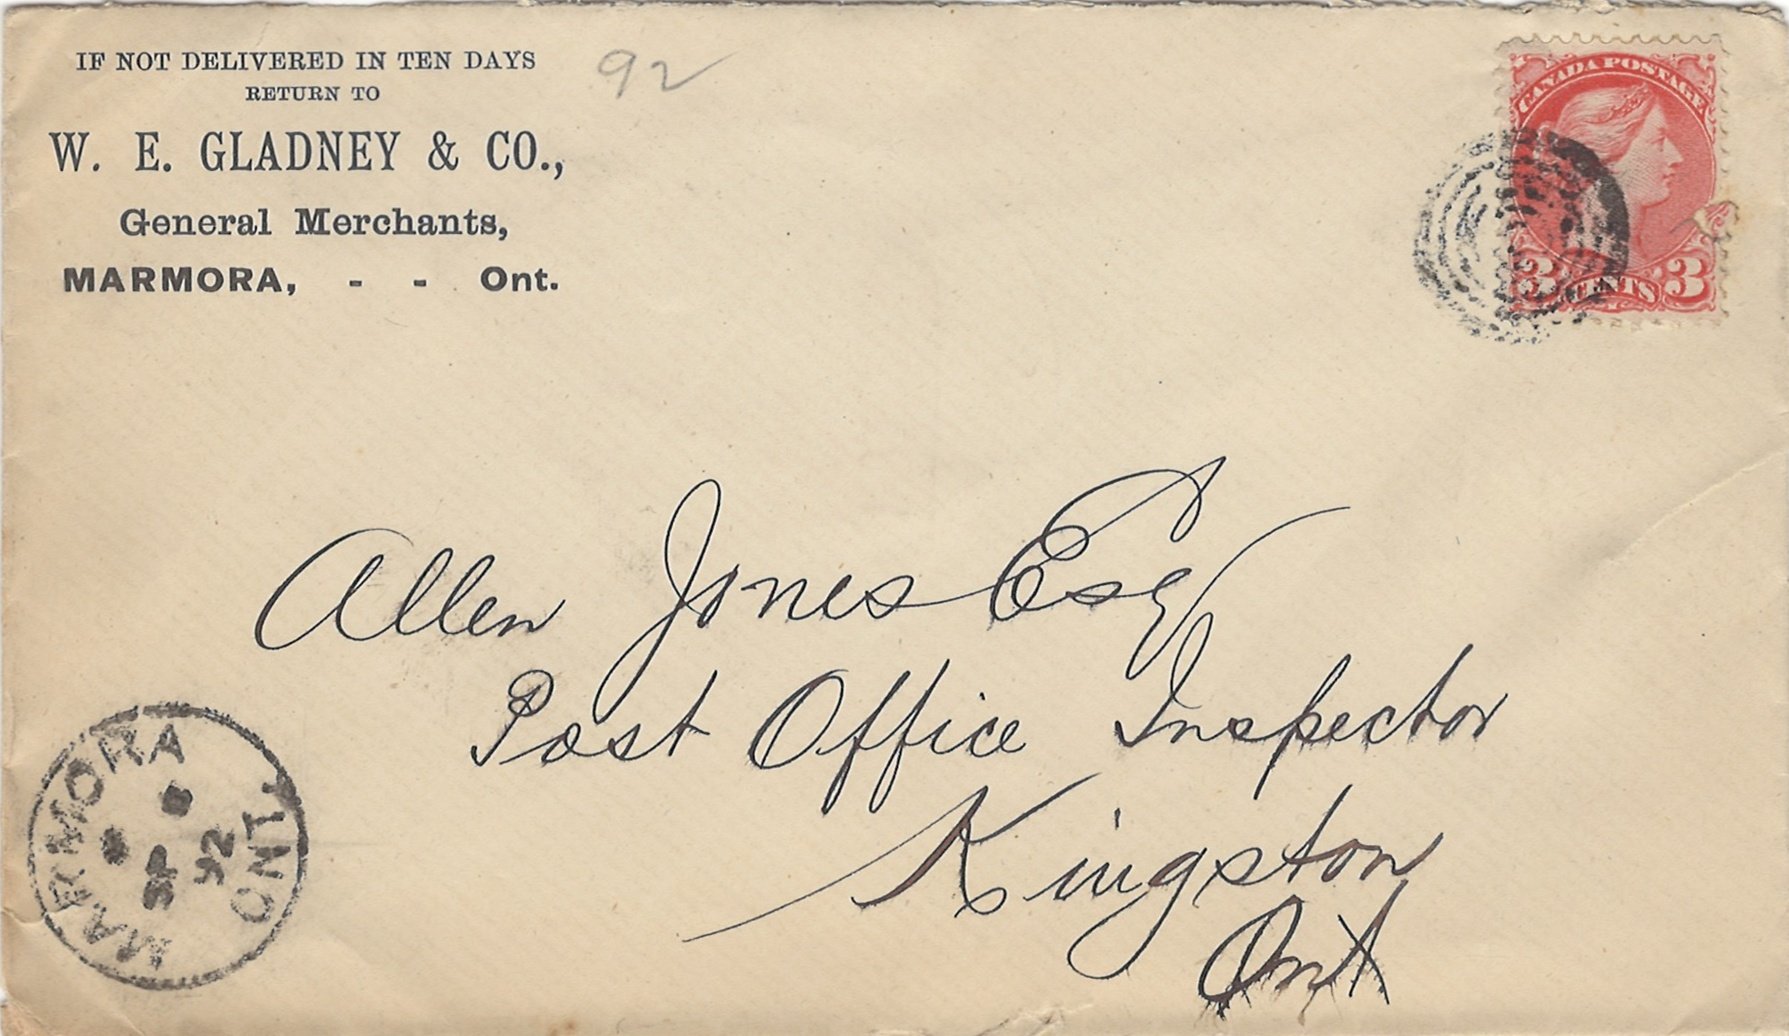 IF NOT DELIVERED IN TEN DAYS
RETURN TO
W. E. GLADNEY & CO.,
General Merchants,
MARMORA, - - Ont.
92
CANADA POSTAGE
3 CENTS 3
Allen Jones Esq
Post Office Inspector
Kingston
Ont
MARMORA
SP
92
ONT.